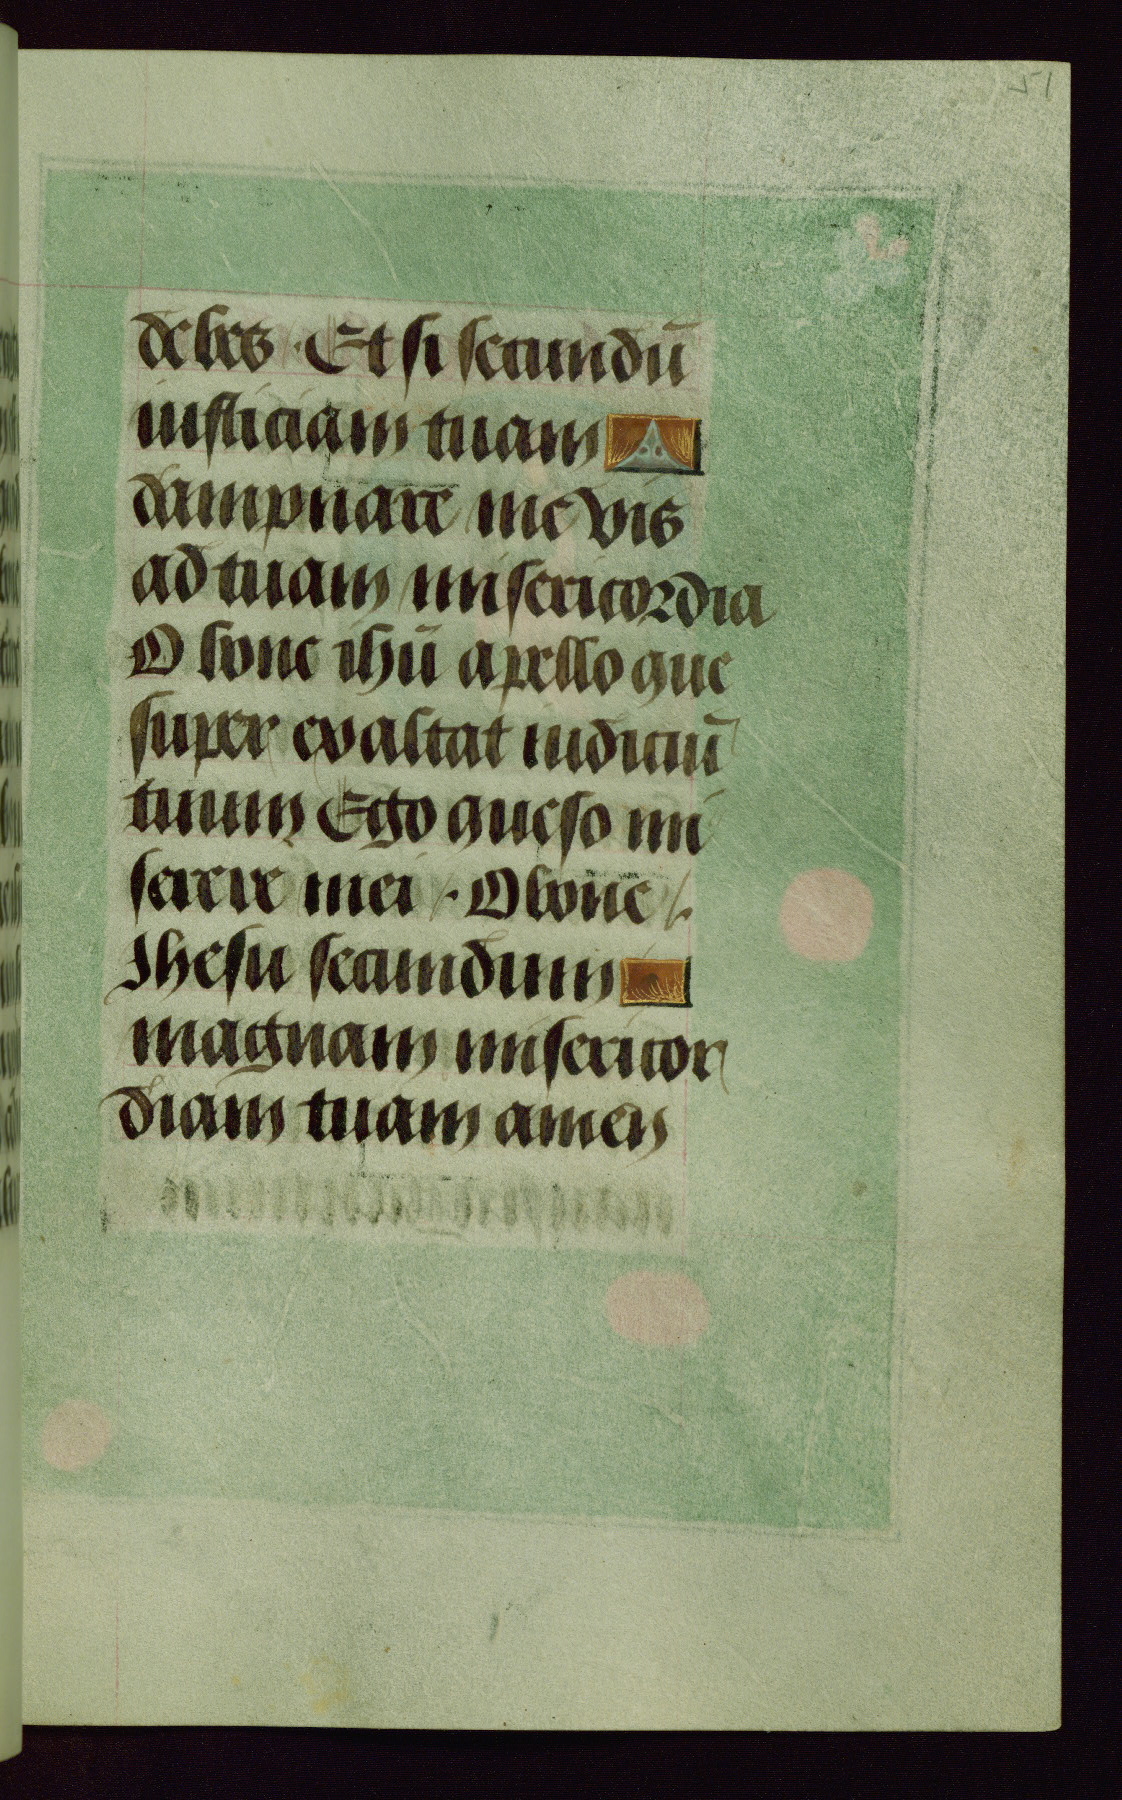 51
debes · Et si secundū
iusticiam tuam
dampnare me vis
ad tuam misericordia
O bone ihū apello que
super exaltat iudiciū
tuum Ego queso mi
serere mei · O bone
Ihesu secundum
magnam misericor
diam tuam amen